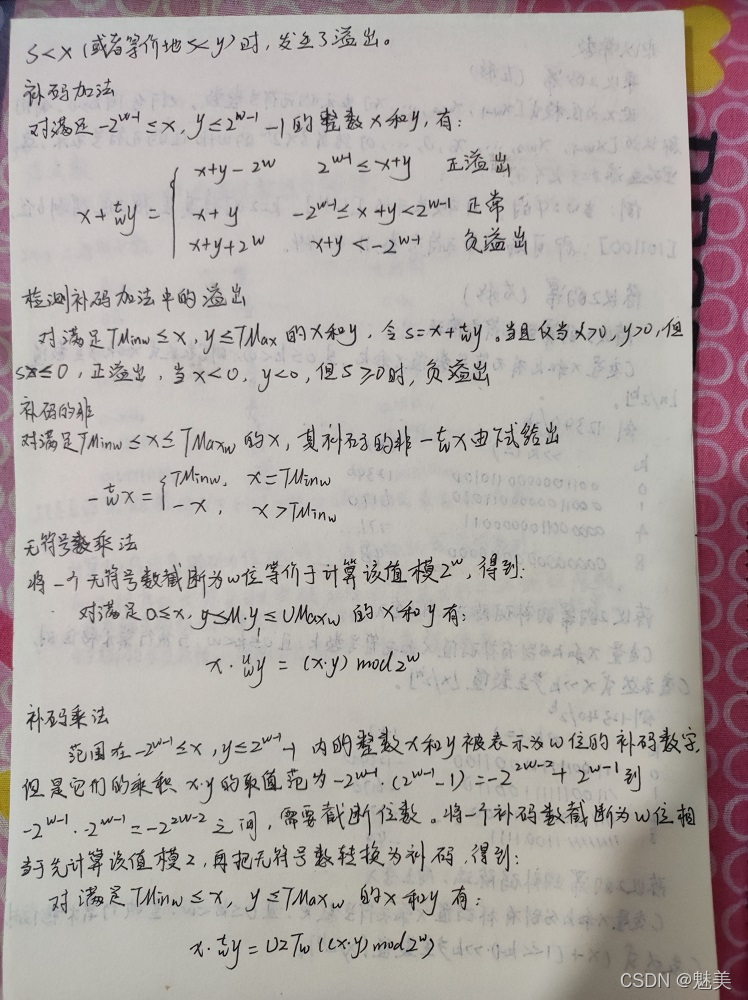 S<x (或者等价地 S<y) 时,发生了溢出。
补码加法
对满足 -2^{w-1} ≤ x, y ≤ 2^{w-1} -1 的整数 x 和 y, 有:
x+y-2^w 2^{w-1} ≤ x+y 正溢出
x +^t_w y = { x+y -2^{w-1} ≤ x+y < 2^{w-1} 正常
x+y+2^w x+y < -2^{w-1} 负溢出
检测补码加法中的溢出
对满足 TMin_w ≤ x, y ≤ TMax 的 x 和 y, 令 s = x +^t_w y 。当且仅当 x>0, y>0, 但
s ≤ 0, 正溢出, 当 x<0, y<0, 但 S ≥ 0 时, 负溢出
补码的非
对满足 TMin_w ≤ x ≤ TMax_w 的 x, 其补码的非 -^t_w x 由下式给出
-^t_w x = { TMin_w, x = TMin_w
-x, x > TMin_w
无符号数乘法
将一个无符号数截断为 w 位等价于计算该值模 2^w, 得到:
对满足 0 ≤ x, y ≤ UMax_w 的 x 和 y 有:
x ·^u_w y = (x·y) mod 2^w
补码乘法
范围在 -2^{w-1} ≤ x, y ≤ 2^{w-1} -1 内的整数 x 和 y 被表示为 w 位的补码数字,
但是它们的乘积 x·y 的取值范为 -2^{w-1} · (2^{w-1} -1) = -2^{2w-2} + 2^{w-1} 到
-2^{w-1} · 2^{w-1} = -2^{2w-2} 之间, 需要截断位数。将一个补码数截断为 w 位相
当于先计算该值模 2, 再把无符号数转换为补码, 得到:
对满足 TMin_w ≤ x, y ≤ TMax_w 的 x 和 y 有:
x ·^t_w y = U2T_w ((x·y) mod 2^w)
CSDN @魅美